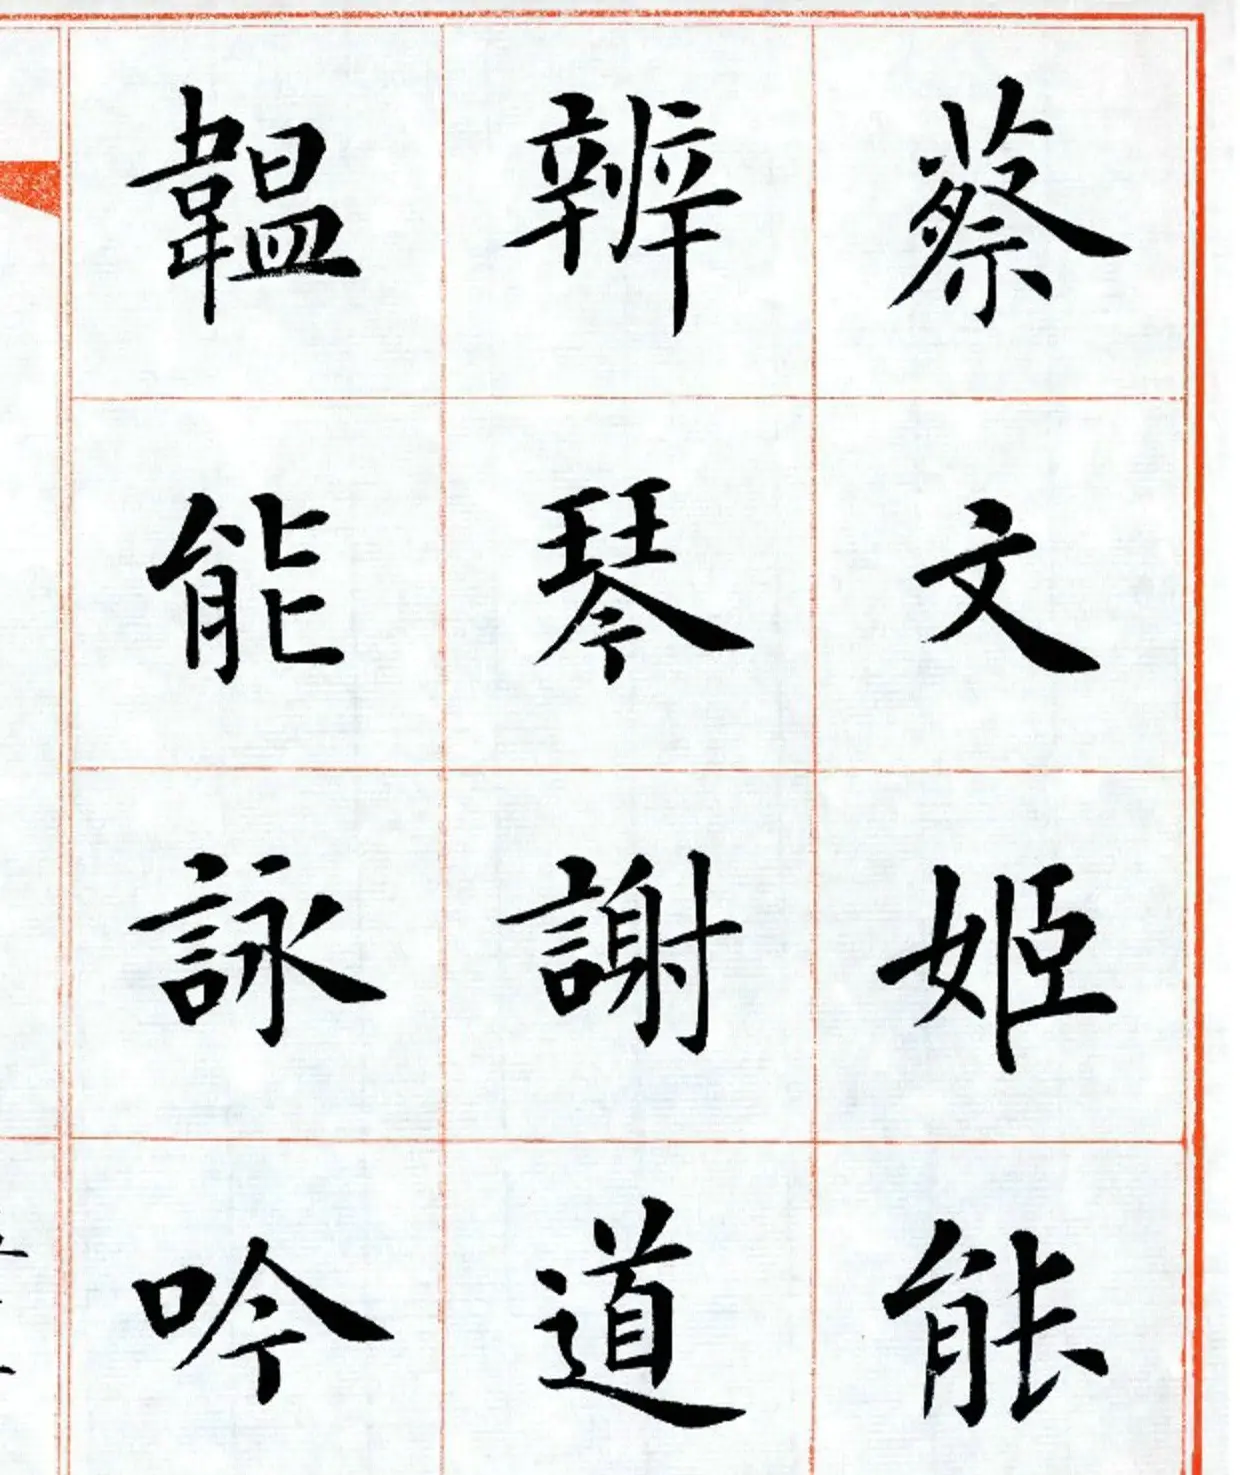 蔡文姬能
辨琴謝道
韞能詠吟